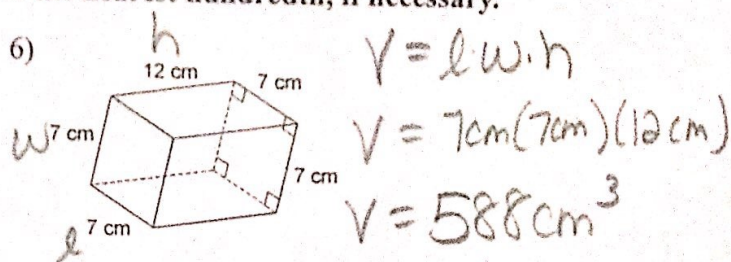 nearest hundredth, if necessary.
6)
h
12 cm
7 cm
w 7 cm
7 cm
l 7 cm
V = l·w·h
V = 7cm(7cm)(12cm)
V = 588cm³